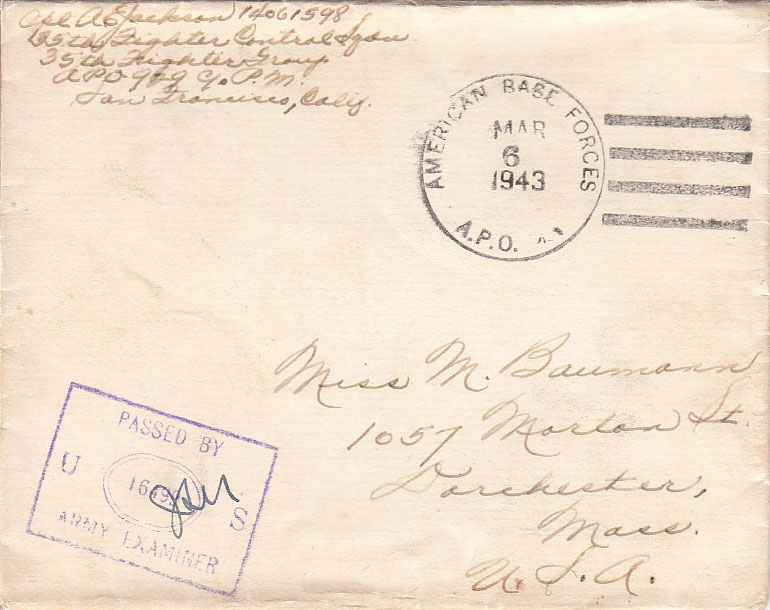 A. Jackson 14061598
Fighter Control Sqdn.
35th Fighter Group
APO 929 % P.M.
San Francisco, Calif.
AMERICAN BASE FORCES
MAR
6
1943
A.P.O.
Miss M. Baumann
1057 Morton St.
Dorchester,
Mass.
U.S.A.
PASSED BY
U S
ARMY EXAMINER